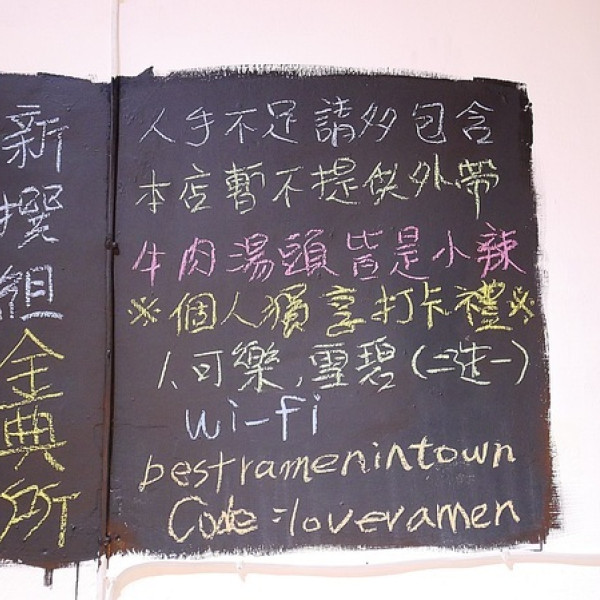 新撰組金典所
人手不足請多包含
本店暫不提供外帶
牛肉湯頭皆是小辣
※個人獨享打卡禮※
1.可樂.雪碧(二選一)
wi-fi
bestramenintown
Code:loveramen